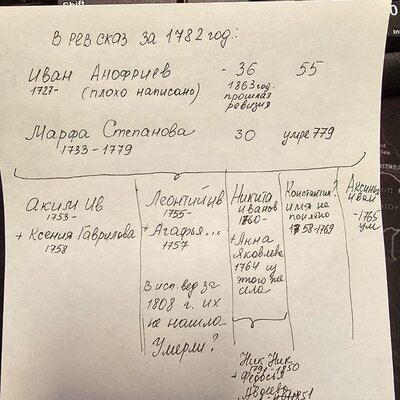 В РЕВ СКАЗ за 1782 год:
Иван Анофриев - 36 55
1727- (плохо написано) 1863 год.
прошлая
ревизия
Марфа Степанова 30 умре 779
1733 - 1779
Аким Ив
1753-
+ Ксения Гаврилова
1758
Леонтий ив
1755-
+ Агафья...
1757
В исп. вед за
1808 г. их
не нашла
Умерли?
Никита
иванов
1760-
+ Анна
Яковлева
1764 из
этого же
села
Ник Ник
1791-1850
+ Федосья
Авдеева
Константин?
имя не
понятно
1758-1769
Аксинья
Иван
-1765
ум
Shift